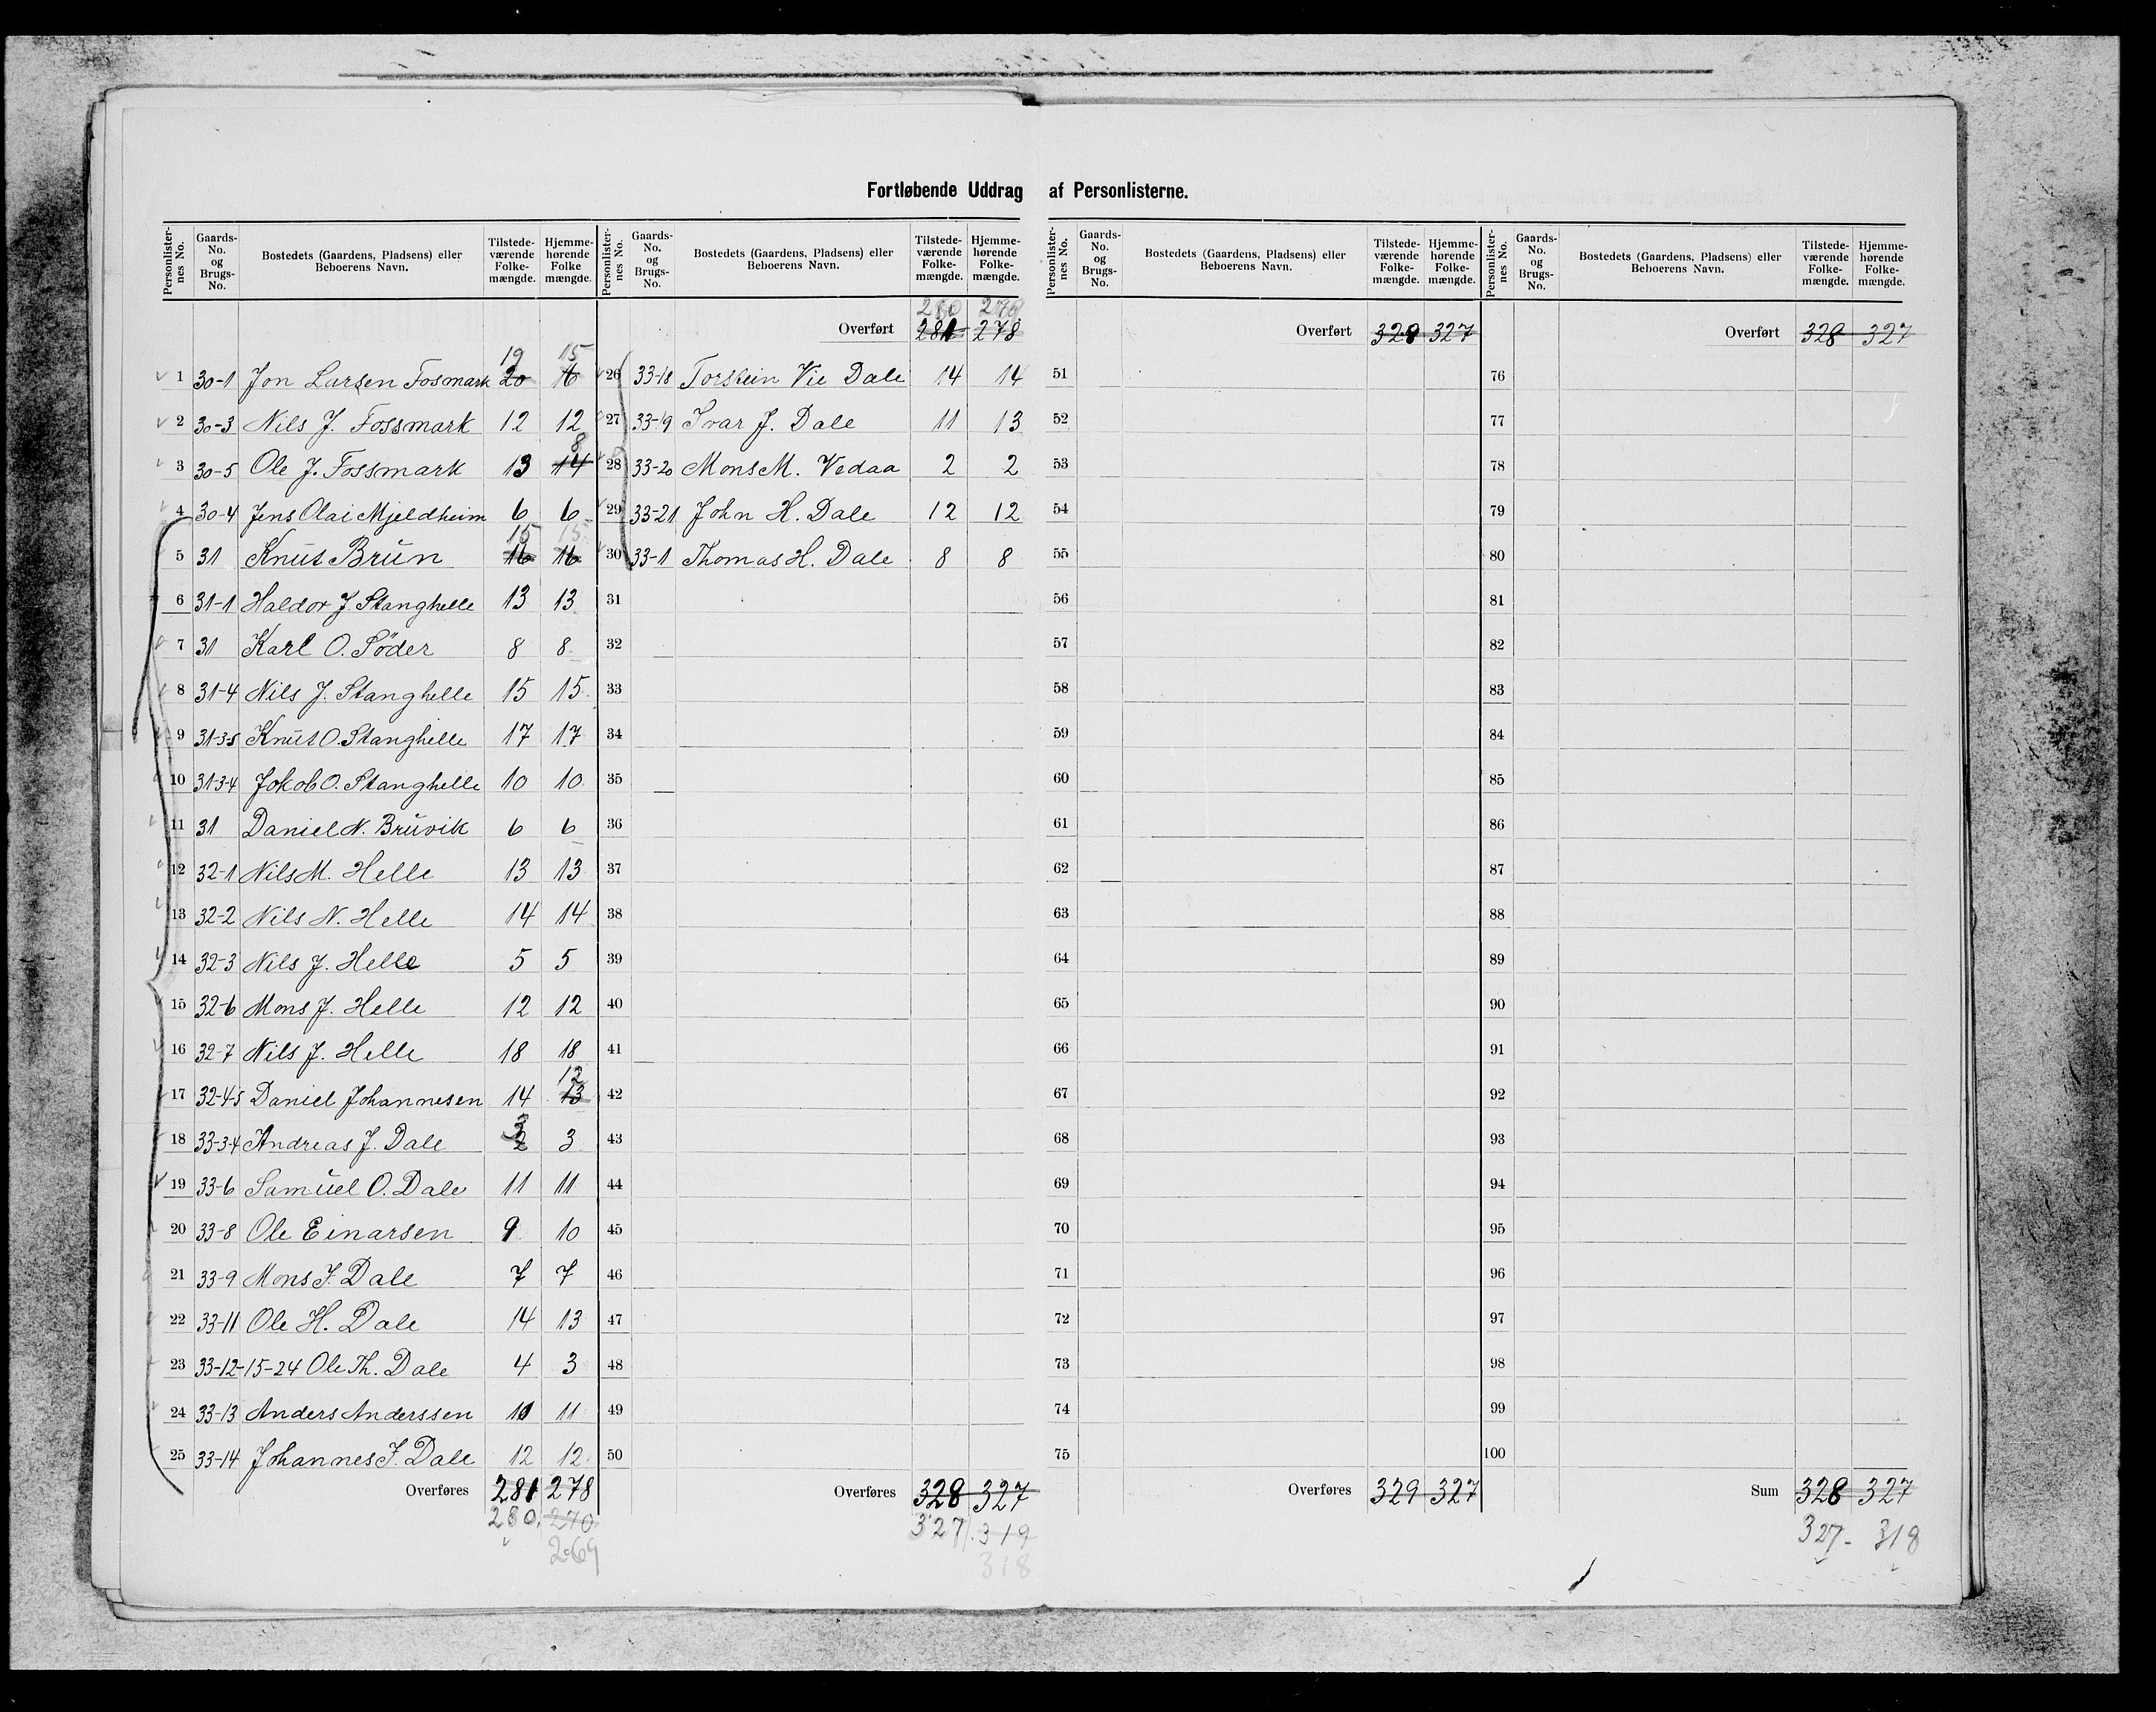 Fortløbende Uddrag af Personlisterne.
Personlister-nes No. | Gaards-No. og Brugs-No. | Bostedets (Gaardens, Pladsens) eller Beboerens Navn. | Tilstede-værende Folke-mængde. | Hjemme-hørende Folke mængde.
1 30-1 Jon Larsen Fosmark 20 19 16 15
2 30-3 Nils J. Fossmark 12 12
3 30-5 Ole J. Fossmark 13 14 8
4 30-4 Jens Olai Mjeldheim 6 6
5 31 Knut Brun 16 15 16 15
6 31-1 Haldor J. Stanghelle 13 13
7 31 Karl O. Söder 8 8
8 31-4 Nils J. Stanghelle 15 15
9 31-3-5 Knut O. Stanghelle 17 17
10 31-3-4 Jokob O. Stanghelle 10 10
11 31 Daniel N. Bruvik 6 6
12 32-1 Nils M. Helle 13 13
13 32-2 Nils N. Helle 14 14
14 32-3 Nils J. Helle 5 5
15 32-6 Mons J. Helle 12 12
16 32-7 Nils J. Helle 18 18
17 32-4-5 Daniel Johannesen 14 13 12
18 33-3-4 Andreas J. Dale 2 3 3
19 33-6 Samuel O. Dale 11 11
20 33-8 Ole Einarsen 9 10
21 33-9 Mons J. Dale 7 7
22 33-11 Ole H. Dale 14 13
23 33-12-15-24 Ole Th. Dale 4 3
24 33-13 Anders Anderssen 11
25 33-14 Johannes J. Dale 12 12
Overføres 281 278
280. 270
269
Personlister-nes No. | Gaards-No. og Brugs-No. | Bostedets (Gaardens, Pladsens) eller Beboerens Navn. | Tilstede-værende Folke-mængde. | Hjemme-hørende Folke-mængde.
280
Overført 281 278
26 33-18 Torstein Vie Dale 14 14
27 33-19 Ivar J. Dale 11 13
28 33-20 Mons M. Vedaa 2 2
29 33-21 John H. Dale 12 12
30 33-1 Thomas H. Dale 8 8
31
32
33
34
35
36
37
38
39
40
41
42
43
44
45
46
47
48
49
50
Overføres 328 327
327 319
318
Personlister-nes No. | Gaards-No. og Brugs-No. | Bostedets (Gaardens, Pladsens) eller Beboerens Navn. | Tilstede-værende Folke-mængde. | Hjemme-hørende Folke-mængde.
Overført 329 327
51
52
53
54
55
56
57
58
59
60
61
62
63
64
65
66
67
68
69
70
71
72
73
74
75
Overføres 329 327
Personlister-nes No. | Gaards-No. og Brugs-No. | Bostedets (Gaardens, Pladsens) eller Beboerens Navn. | Tilstede-værende Folke-mængde. | Hjemme-hørende Folke-mængde.
Overført 328 327
76
77
78
79
80
81
82
83
84
85
86
87
88
89
90
91
92
93
94
95
96
97
98
99
100
Sum 328 327
327 - 318